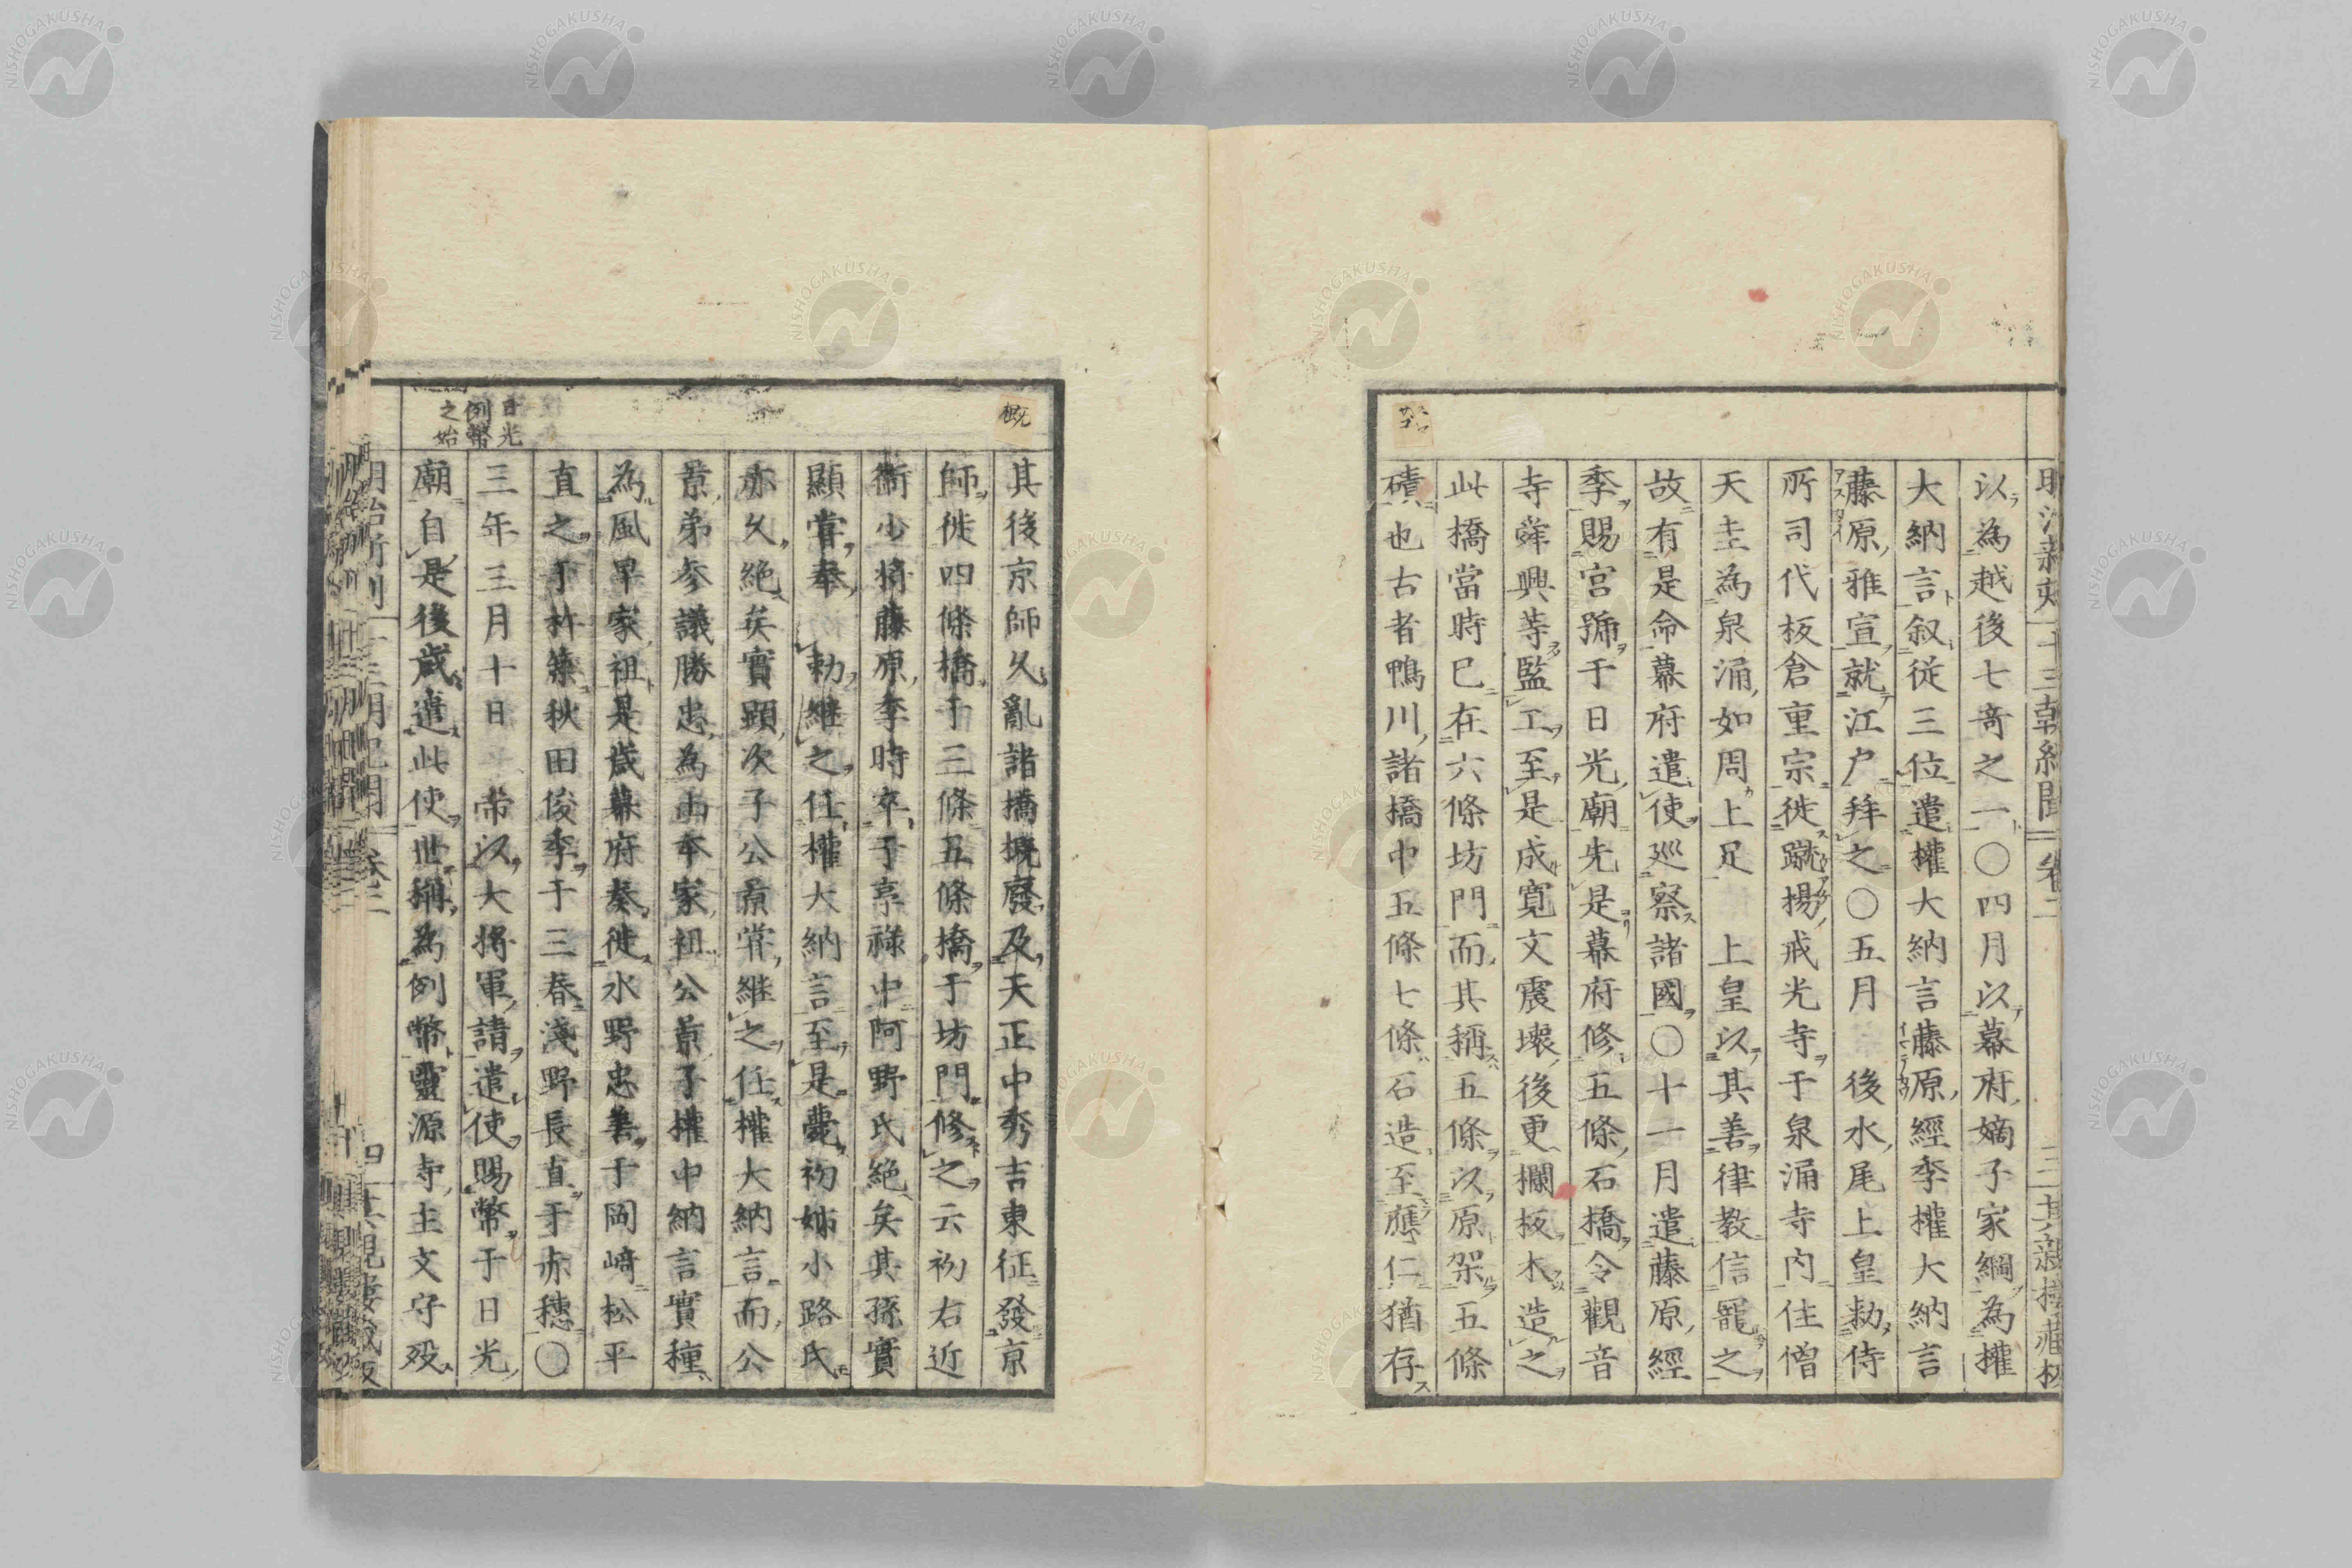 明治新刻 十三朝紀聞 卷二 三 其親楼藏板
以為越後七奇之一〇四月以幕府嫡子家綱為權
大納言叙從三位遣權大納言藤原經季權大納言
藤原雅宣就江戸拜之〇五月 後水尾上皇勅侍
所司代板倉重宗徙蹴揚戒光寺于泉涌寺内住僧
天圭為泉涌如周上足 上皇以其善律教信寵之
故有是命幕府遣使巡察諸國〇十一月遣藤原經
季賜宮號于日光廟先是幕府修五條石橋令觀音
寺舜興等監工至是成寛文震壊後更欄板木造之
此橋當時已在六條坊門而其稱五條以原架五條
磧也古者鴨川諸橋中五條七條石造至應仁猶存
其後京師久亂諸橋概廢及天正中秀吉東征發京
師徙四條橋于三條五條橋于坊門修之云初右近
衛少將藤原季時卒于享祿中阿野氏絶矣其孫實
顯嘗奉 勅継之任權大納言至是薨初姉小路氏
亦久絶矣實顕次子公景嘗継之任權大納言而公
景弟参議勝忠為山本家祖公景子權中納言實種
為風早家祖是歳幕府奏徙水野忠善于岡﨑松平
直之于杵築秋田俊季于三春淺野長直于赤穂〇
三年三月十日 帝以大將軍請遣使賜幣于日光
廟自是後歳遣此使世稱為例幣靈源寺主文守殁
日光
例幣
之始
概
明治新刻 十三朝紀聞 卷二 四 其親楼藏板